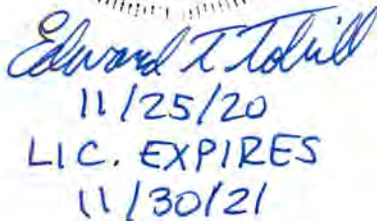 Edward T Tobill
11/25/20
LIC. EXPIRES
11/30/21